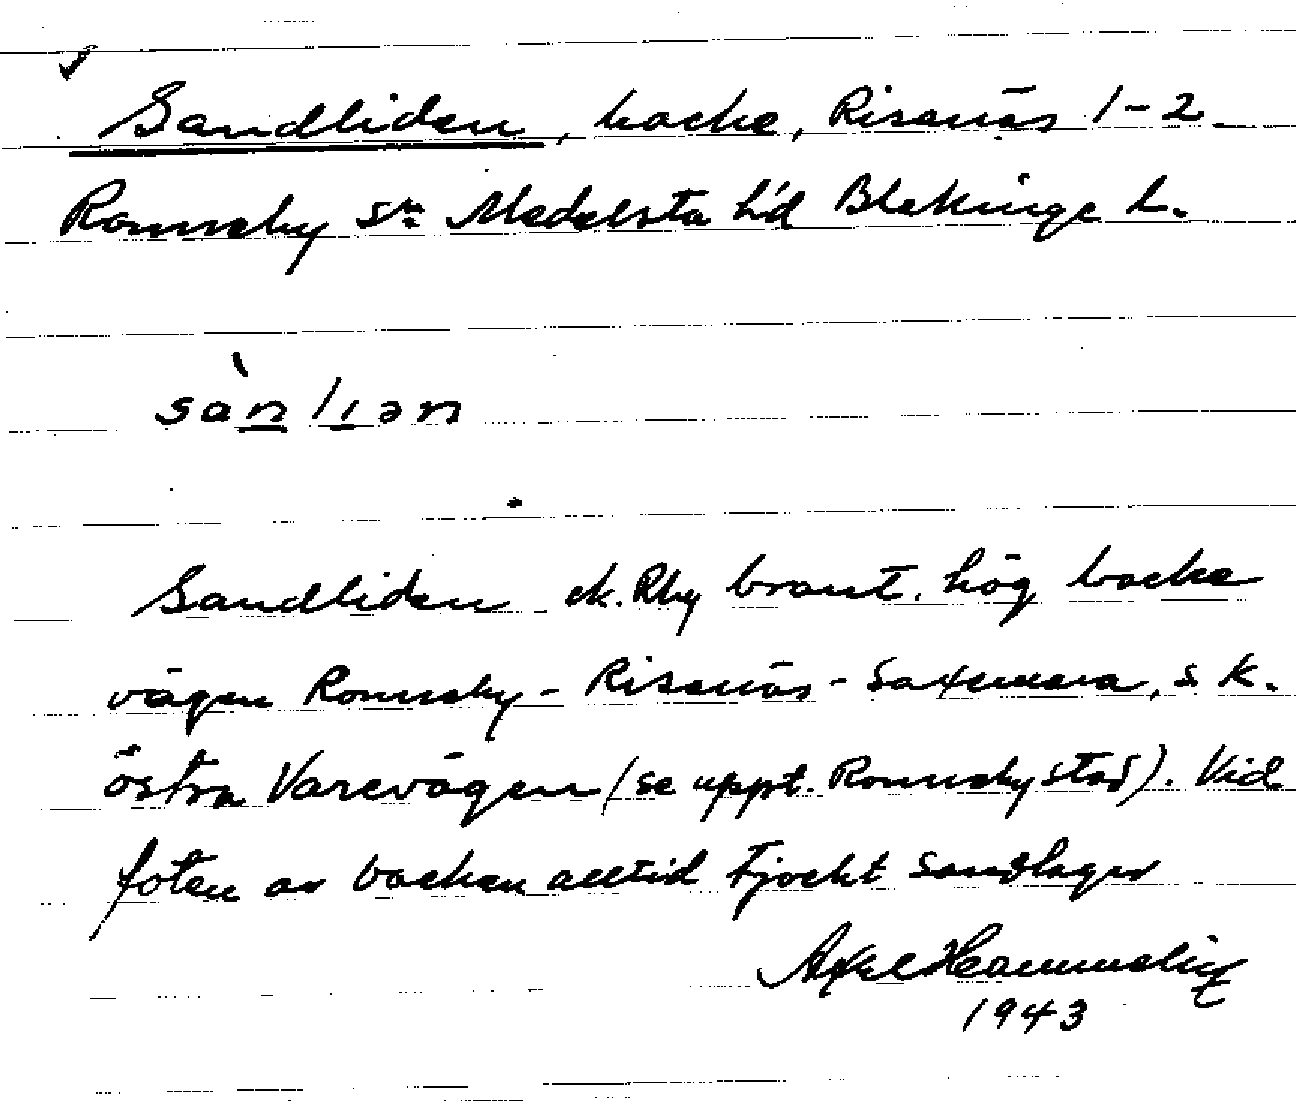 Sandliden, backe, Risanäs 1-2
Ronneby sn Medelsta hd Blekinge l.
sànlıən
Sandliden ek. Rby brant, hög backe
vägen Ronneby - Risanäs - Saxemara, s k.
östra Varevägen (se uppt. Ronneby stad). Vid
foten av backen alltid tjockt sandlager
Axel
1943